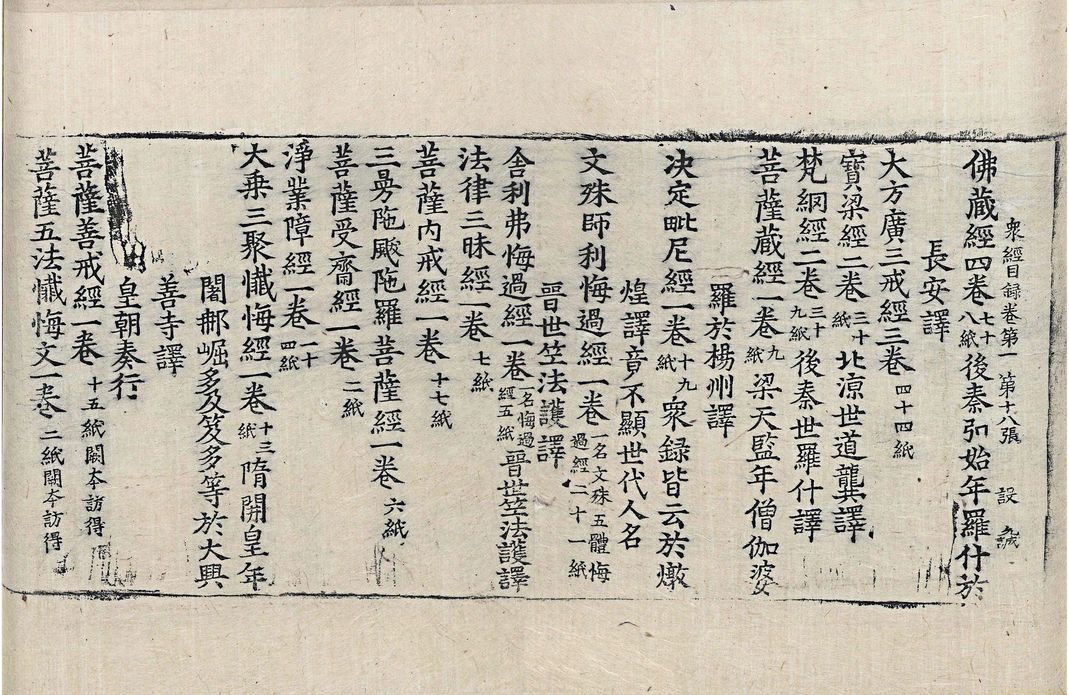 衆經目録卷第一 第十八張 設
佛藏經四卷七十八紙後秦弘始年羅什於
長安譯
大方廣三戒經三卷四十四紙
寶梁經二卷三十紙北涼世道龔譯
梵網經二卷三十九紙後秦世羅什譯
菩薩藏經一卷九紙梁天監年僧伽婆
羅於楊州譯
決定毗尼經一卷十九紙衆録皆云於燉
煌譯竟不顯世代人名
文殊師利悔過經一卷一名文殊五體悔過經二十一紙
晉世竺法護譯
舍利弗悔過經一卷一名悔過經五紙晉世竺法護譯
法律三昧經一卷七紙
菩薩内戒經一卷十七紙
三曼陁颰陁羅菩薩經一卷六紙
菩薩受齋經一卷二紙
淨業障經一卷一十四紙
大乗三聚懺悔經一卷十三紙隋開皇年
闍那崛多及笈多等於大興
善寺譯
皇朝奏行
菩薩善戒經一卷十五紙闕本訪得
菩薩五法懺悔文一卷二紙闕本訪得